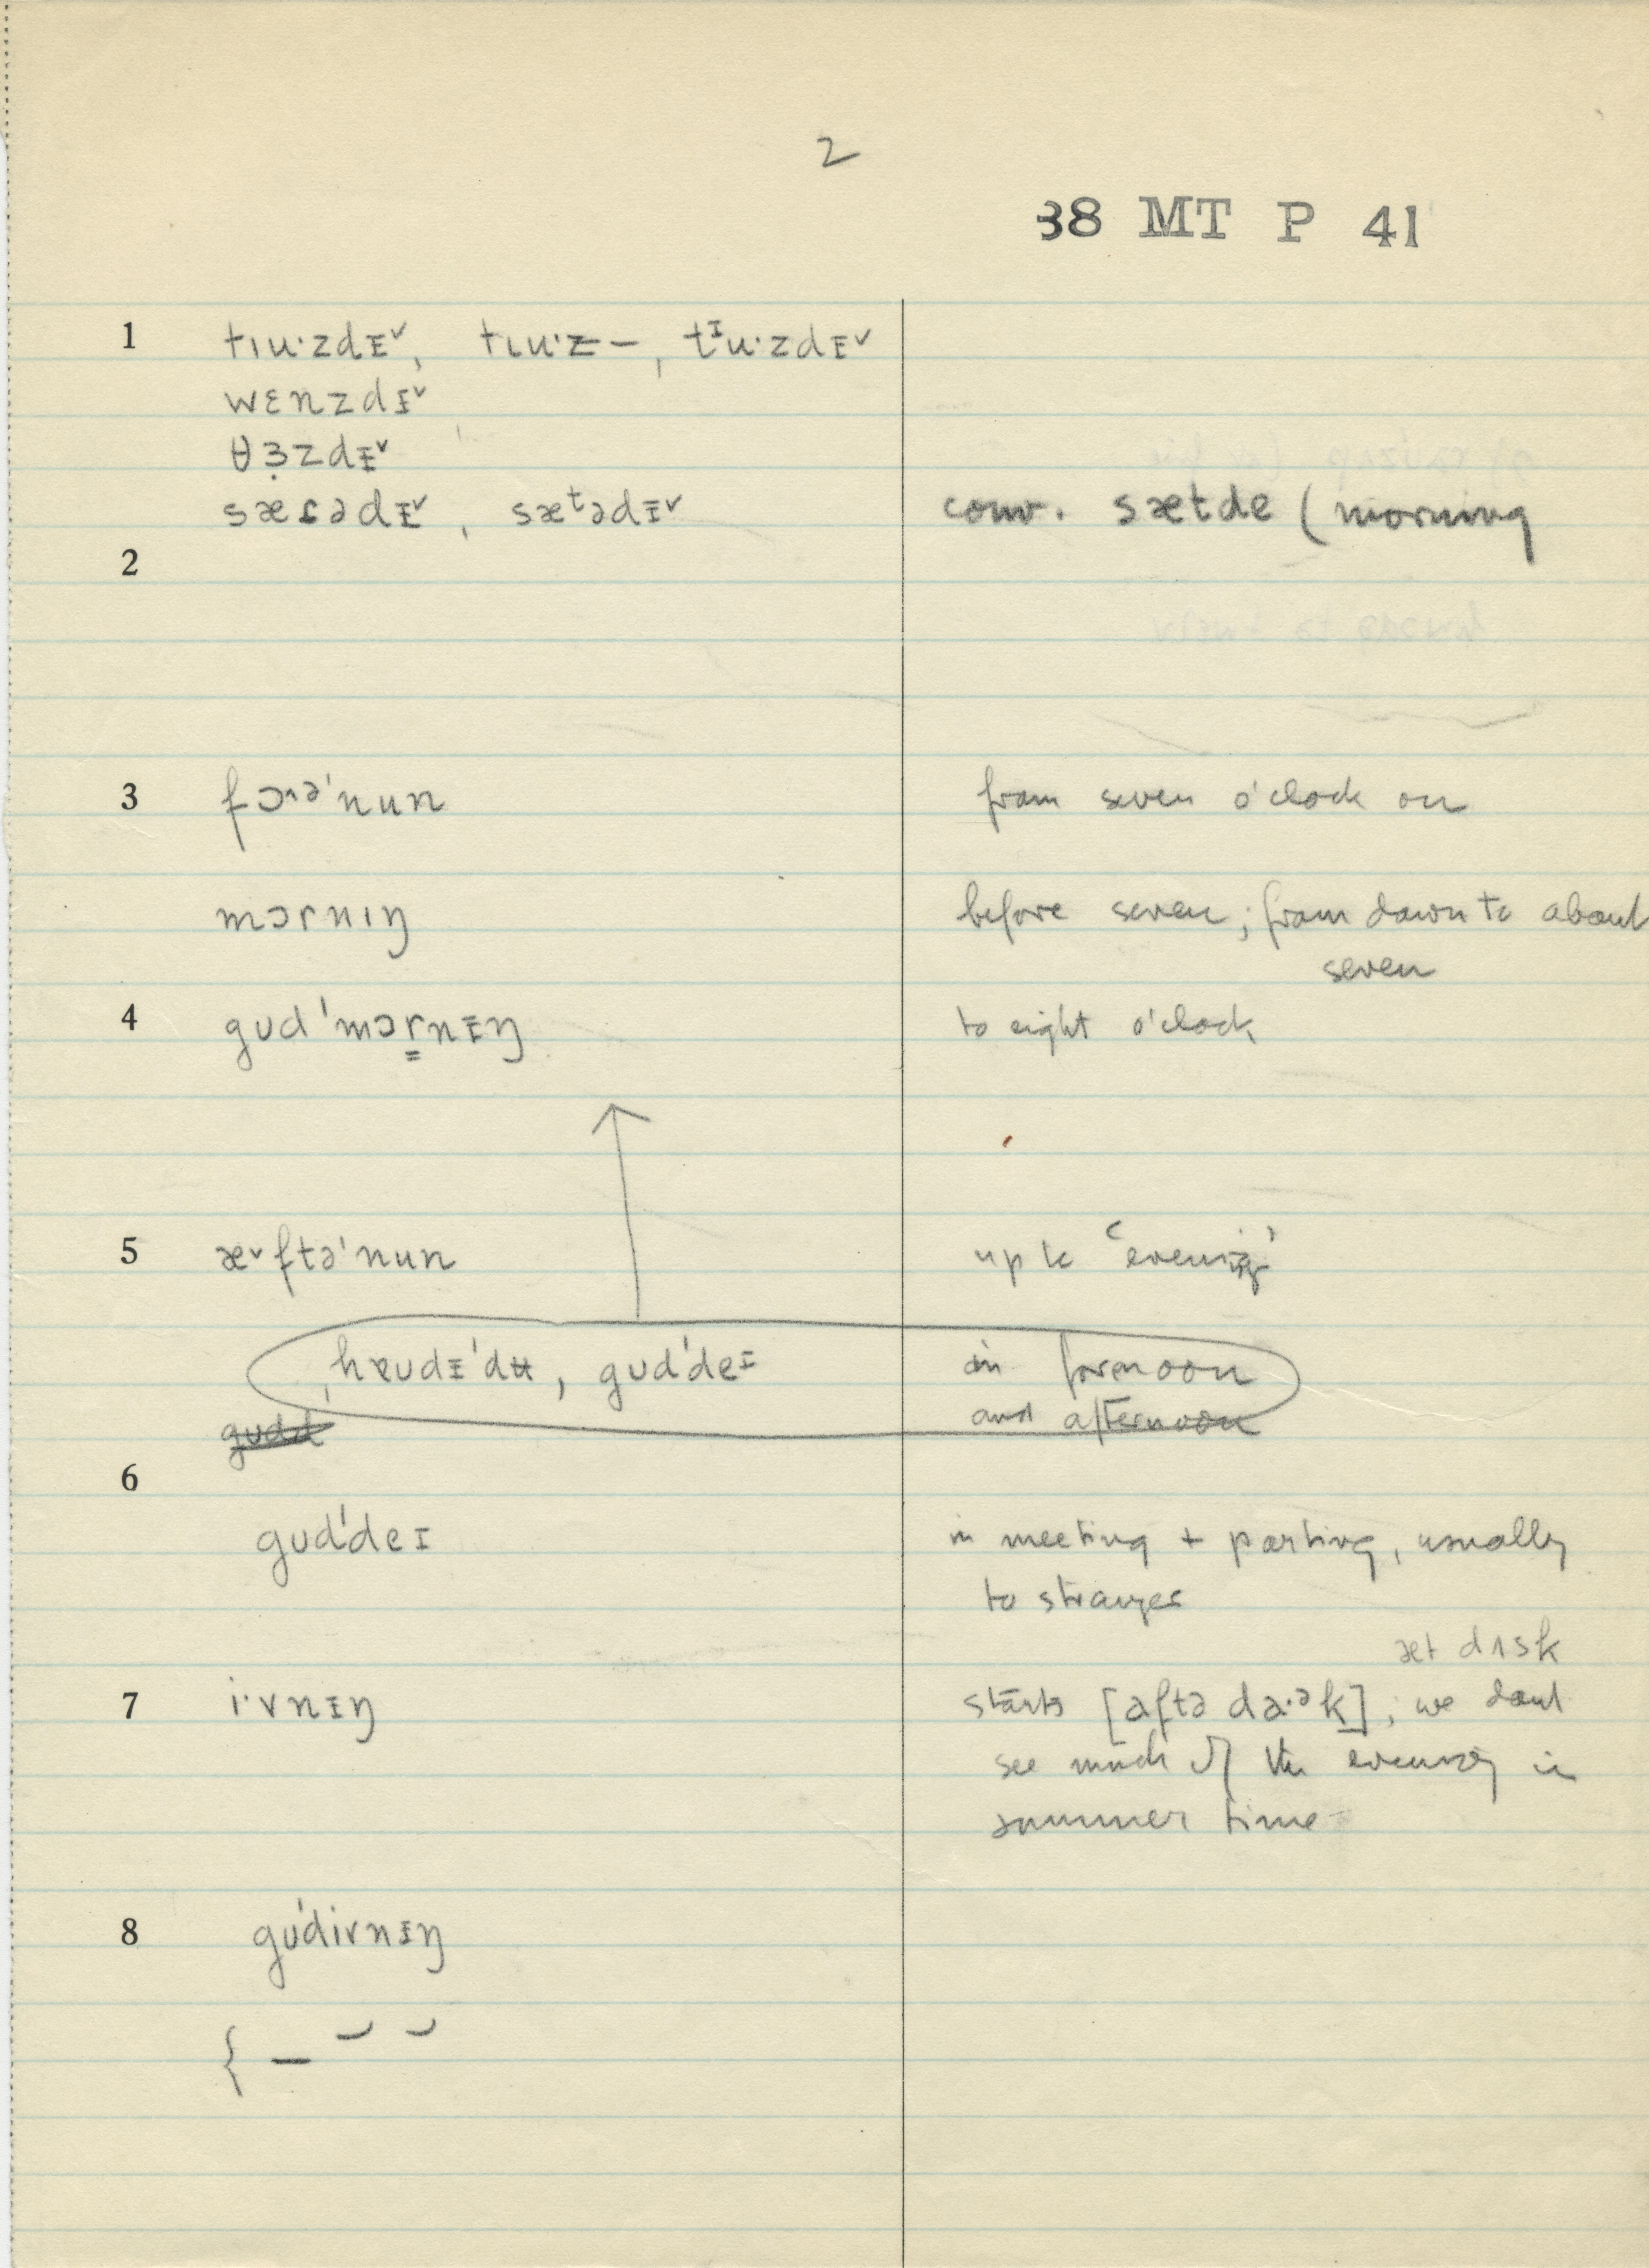 2
38 MT P 41
1 tɩu·zdɪ˅, tɩu·z–, tᶦu·zdɪ˅
wɛnzdɪ˅
θɜ̣zdɪ˅
sæɾədɪ˅, sæᵗədɪ˅ conv. sætde (morning
2
3 fɔ˄ə'nun from seven o'clock on
mɔrnɩŋ before seven; from dawn to about
seven
4 gʊd'mɔr̳nɪŋ to eight o'clock
5 æ˅ftə'nun up to 'evening'
hɐʊdɪ'dʉ, gʊd'deɪ in forenoon
gudd and afternoon
6
gʊd'deɪ in meeting + parting, usually
to stranger
æt dʌsk
7 i·vnɪŋ starts [aftə da·ᵊk]; we don't
see much of the evening in
summer time
8 gʊ'divnɪŋ
{ –